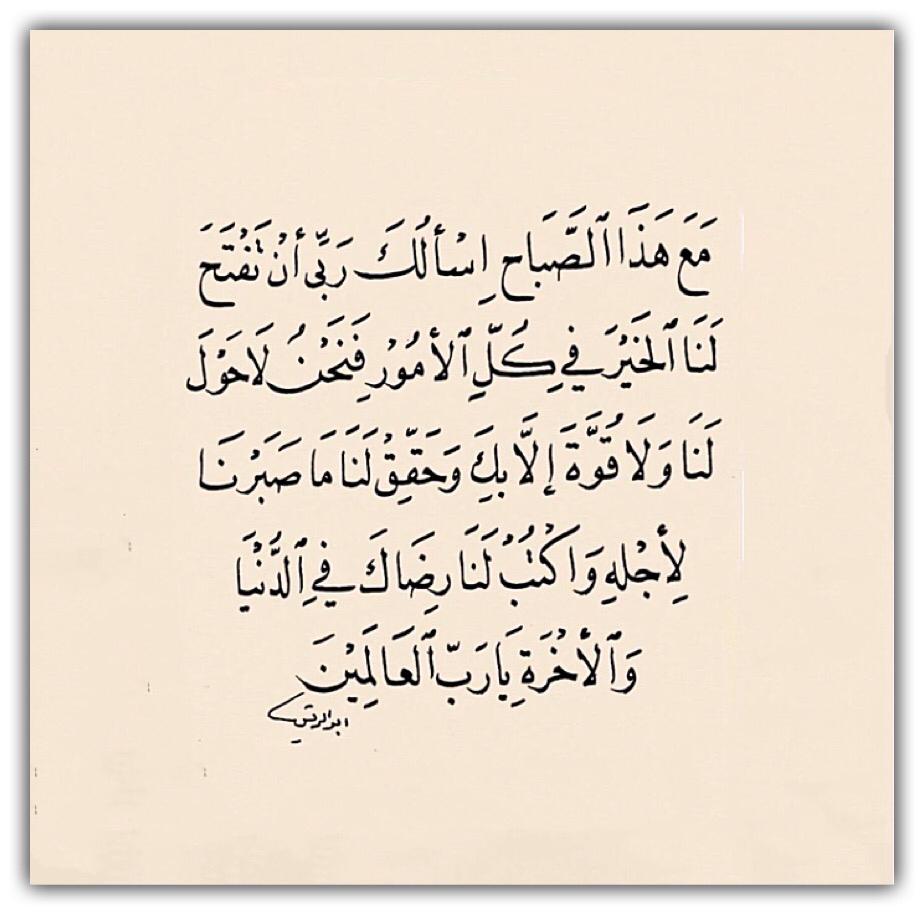 مَعَ هَذَا ٱلصَّبَاح إِسْأَلُكَ رَبِّى أَنْ تَفْتَحَ
لَنَا ٱلخَيْرَ فِي كِلِّ ٱلأُمُوْرِ فَنَحْنُ لَا حَوْلَ
لَنَا وَلَا قُوَّةَ إِلَّا بِكَ وَحَقِّقْ لَنَا مَا صَبَرْنَا
لِأَجْلِهِ وَاكْتُبْ لَنَا رِضَاكَ فِي ٱلدُّنْيَا
وَٱلأَخْرَةِ يَا رَبَّ ٱلعَالَمِيْنَ